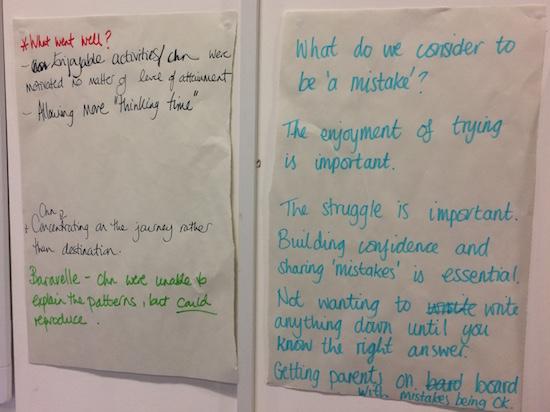 * What went well?
- Enjoyable activities/chn were
motivated no matter of level of attainment
- Allowing more "thinking time"
Chn
* Concentrating on the journey rather
than destination.
Baravelle - chn were unable to
explain the patterns, but could
reproduce.
What do we consider to
be 'a mistake'?
The enjoyment of trying
is important.
The struggle is important.
Building confidence and
sharing 'mistakes' is essential.
Not wanting to write
anything down until you
know the right answer.
Getting parents on board
with mistakes being OK.